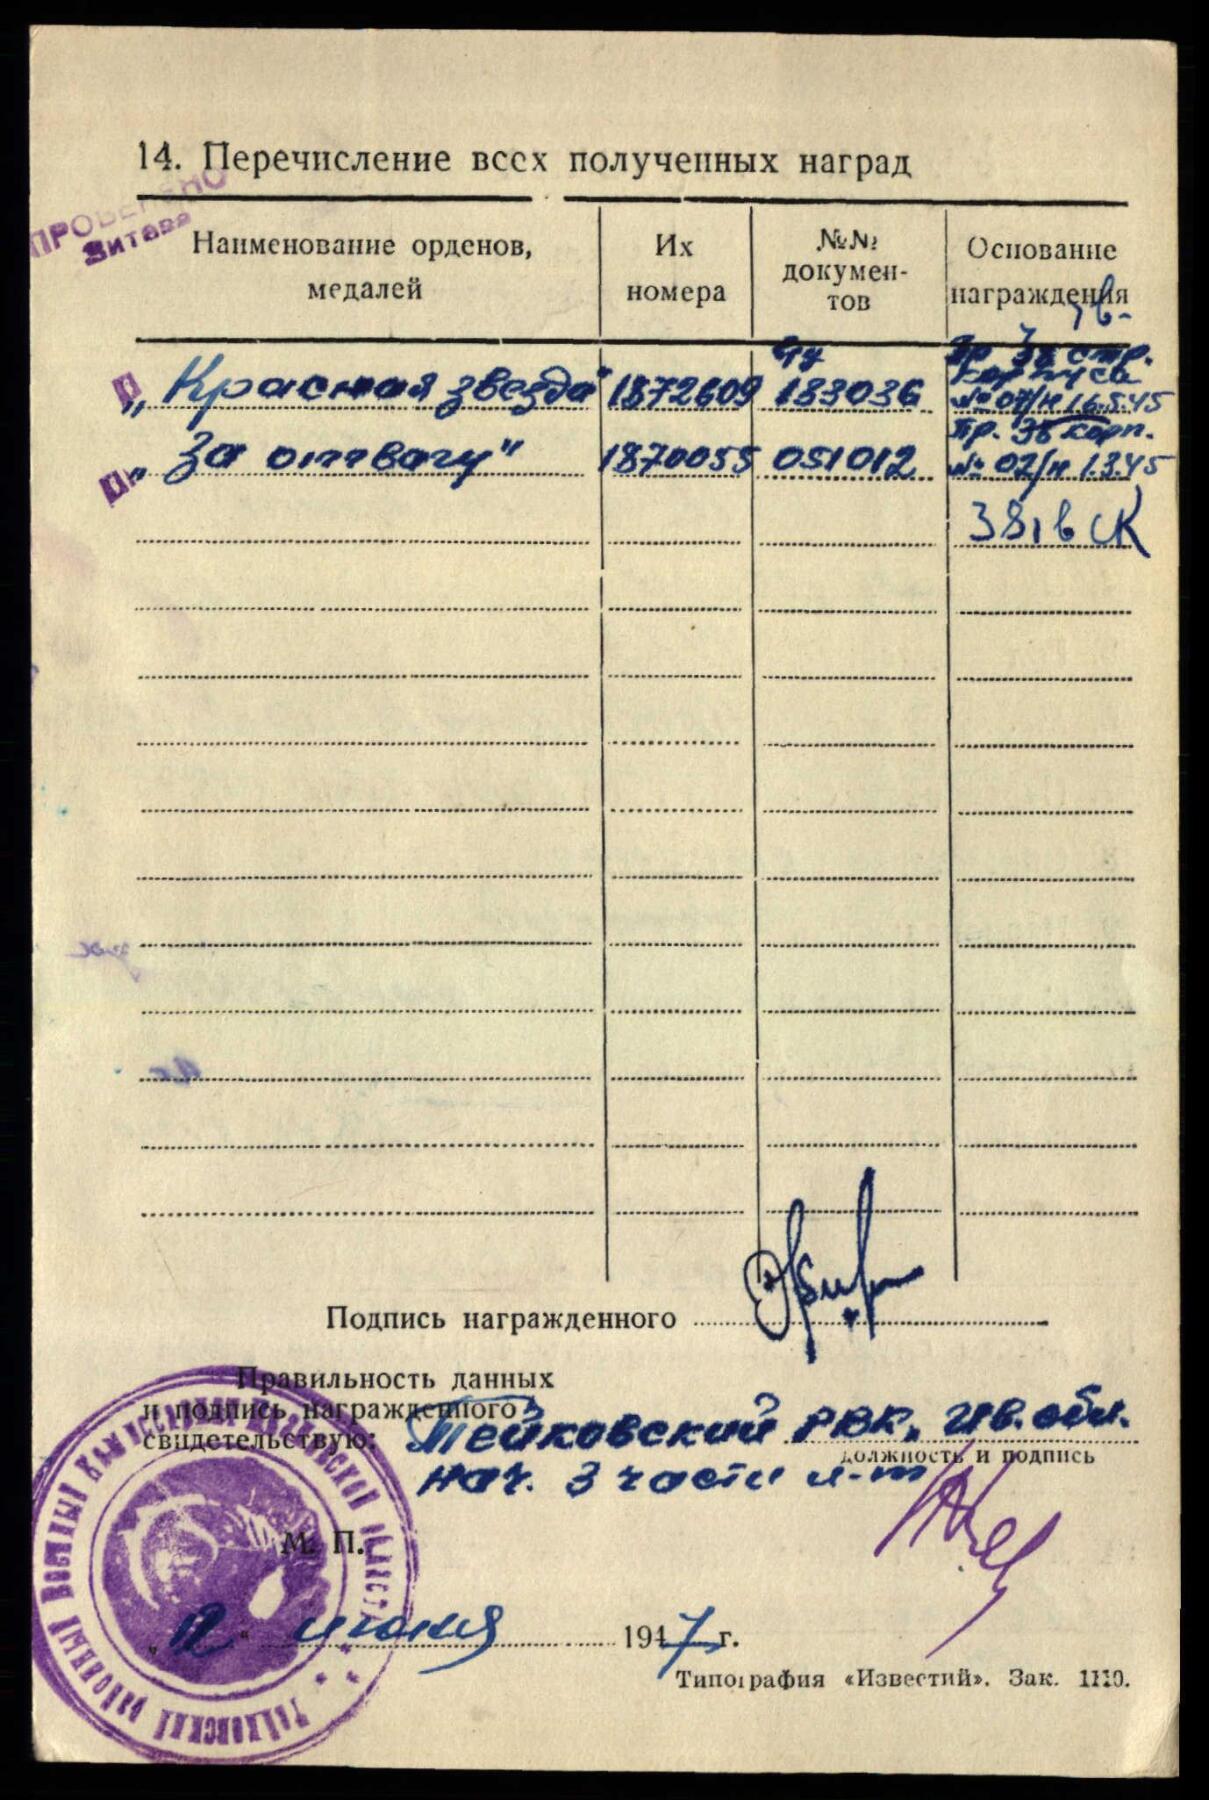 14. Перечисление всех полученных наград
ПРОВЕРЕНО
Наименование орденов,
медалей
Их
номера
№№
докумен-
тов
Основание
награждения
П „Красная звезда" 1872609 183036 Пр. 36 стр.
корпуса
№ 07/н 16.5.45
П „За отвагу" 1870055 051012 Пр. 36 корп.
№ 02/н 1.3.45
Подпись награжденного
Правильность данных
и подпись награжденного
свидетельствую: Тейковский РВК, Ив. обл.
должность и подпись
Нач. 3 части л-т
М. П.
„12" июня 1947 г.
Типография «Известий». Зак. 1110.